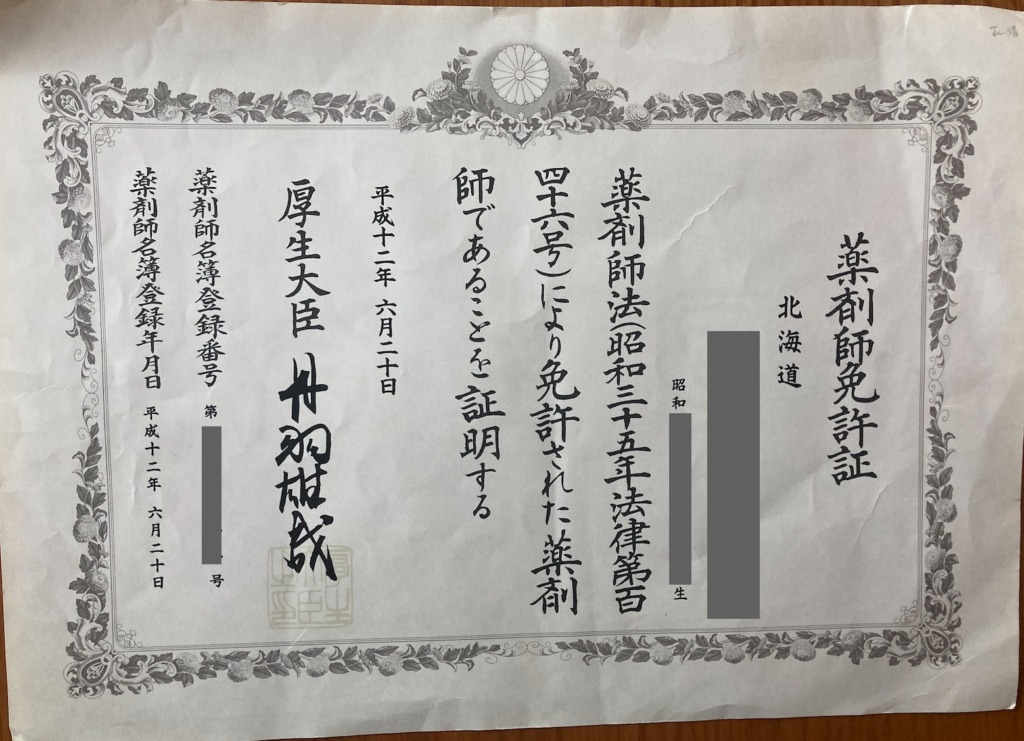 薬剤師免許証
北海道
昭和
生
薬剤師法(昭和三十五年法律第百
四十六号)により免許された薬剤
師であることを証明する
平成十二年 六月二十日
厚生大臣 丹羽雄哉
薬剤師名簿登録番号 第 号
薬剤師名簿登録年月日 平成十二年 六月二十日